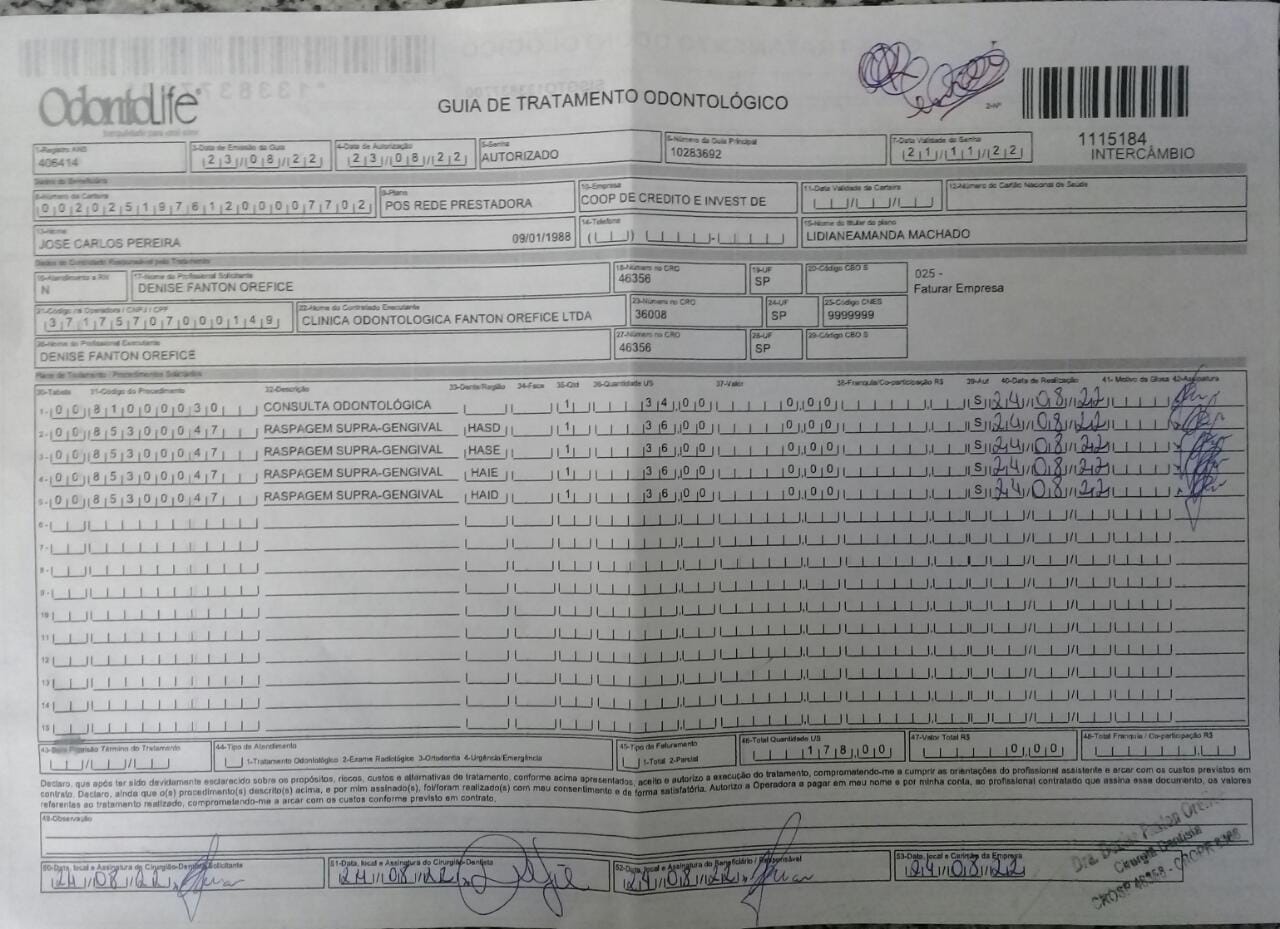 OdontoLife
GUIA DE TRATAMENTO ODONTOLÓGICO
2-Nº
1115184
INTERCÂMBIO
1-Registro ANS 3-Data de Emissão da Guia 4-Data de Autorização 5-Senha 6-Número da Guia Principal 7-Data Validade da Senha
406414 23/08/22 23/08/22 AUTORIZADO 10283692 21/11/22
Dados do Beneficiário
8-Número da Carteira 9-Plano 10-Empresa 11-Data Validade da Carteira 12-Número do Cartão Nacional de Saúde
00202519761200007702 POS REDE PRESTADORA COOP DE CREDITO E INVEST DE
13-Nome 14-Telefone 15-Nome do titular do plano
JOSE CARLOS PEREIRA 09/01/1988 LIDIANEAMANDA MACHADO
Dados do Contratado Responsável pelo Tratamento
16-Atendimento a RN 17-Nome do Profissional Solicitante 18-Número no CRO 19-UF 20-Código CBO S
N DENISE FANTON OREFICE 46356 SP
025 -
Faturar Empresa
21-Código na Operadora / CNPJ / CPF 22-Nome do Contratado Executante 23-Número no CRO 24-UF 25-Código CNES
37175707000149 CLINICA ODONTOLOGICA FANTON OREFICE LTDA 36008 SP 9999999
26-Nome do Profissional Executante 27-Número no CRO 28-UF 29-Código CBO S
DENISE FANTON OREFICE 46356 SP
Plano de Tratamento / Procedimentos Solicitados
30-Tabela 31-Código do Procedimento 32-Descrição 33-Dente/Região 34-Face 35-Qtd 36-Quantidade US 37-Valor 38-Franquia/Co-participação R$ 39-Aut 40-Data de Realização 41- Motivo da Glosa 42-Assinatura
1-00 81000030 CONSULTA ODONTOLÓGICA 1 34,00 0,00 S 24/08/22
2-00 85300047 RASPAGEM SUPRA-GENGIVAL HASD 1 36,00 0,00 S 24/08/22
3-00 85300047 RASPAGEM SUPRA-GENGIVAL HASE 1 36,00 0,00 S 24/08/22
4-00 85300047 RASPAGEM SUPRA-GENGIVAL HAIE 1 36,00 0,00 S 24/08/22
5-00 85300047 RASPAGEM SUPRA-GENGIVAL HAID 1 36,00 0,00 S 24/08/22
6-
7-
8-
9-
10
11
12
13
14
15
43-Data Previsão Término do Tratamento 44-Tipo de Atendimento 45-Tipo de Faturamento 46-Total Quantidade US 47-Valor Total R$ 48-Total Franquia / Co-participação R$
1-Tratamento Odontológico 2-Exame Radiológico 3-Ortodontia 4-Urgência/Emergência 1-Total 2-Parcial 178,00 0,00
Declaro, que após ter sido devidamente esclarecido sobre os propósitos, riscos, custos e alternativas de tratamento, conforme acima apresentados, aceito e autorizo a execução do tratamento, comprometendo-me a cumprir as orientações do profissional assistente e arcar com os custos previstos em
contrato. Declaro, ainda que o(s) procedimento(s) descrito(s) acima, e por mim assinado(s), foi/foram realizado(s) com meu consentimento e de forma satisfatória. Autorizo a Operadora a pagar em meu nome e por minha conta, ao profissional contratado que assina esse documento, os valores
referentes ao tratamento realizado, comprometendo-me a arcar com os custos conforme previsto em contrato.
49-Observação
50-Data, local e Assinatura do Cirurgião-Dentista Solicitante 51-Data, local e Assinatura do Cirurgião-Dentista 52-Data, local e Assinatura do Beneficiário / Responsável 53-Data, local e Carimbo da Empresa
24/08/22 24/08/22 24/08/22 24/08/22
Cirurgiã Dentista